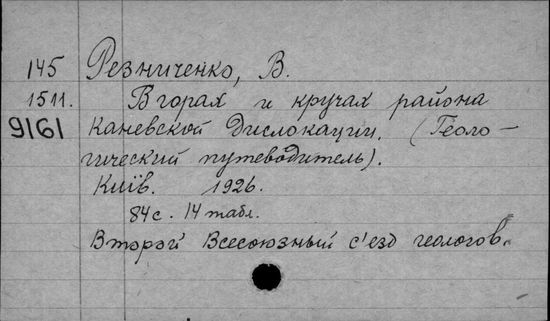 145 Резниченко, В.
1511. В горах и кручах района
9161 Каневской Дислокации. (Геоло-
гический путеводитель).
Київ. 1926.
84 с. 14 табл.
Второй Всесоюзный с'езд геологов.